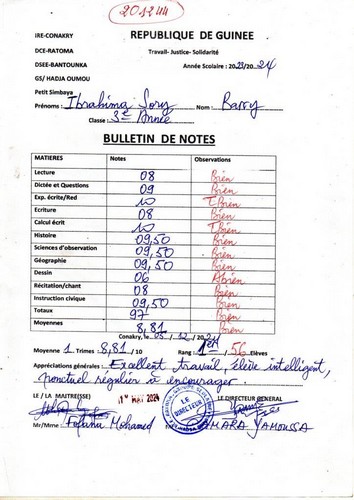 201244
IRE-CONAKRY REPUBLIQUE DE GUINEE
DCE-RATOMA Travail- Justice- Solidarité
DSEE-BANTOUNKA Année Scolaire : 2023/20 24
GS/ HADJA OUMOU
Petit Simbaya
Prénoms : Ibrahima Sory Nom : Barry
Classe : 3e Année
BULLETIN DE NOTES
MATIERES Notes Observations
Lecture 08 Bien
Dictée et Questions 09 Bien
Exp. écrite/Red 10 TBien
Ecriture 08 Bien
Calcul écrit 10 TBien
Histoire 09,50 Bien
Sciences d'observation 09,50 Bien
Géographie 09,50 Bien
Dessin 06 ABien
Récitation/chant 08 Bien
Instruction civique 09,50 Bien
Totaux 97 Bien
Moyennes 8,81 Bien
Conakry, le 05 / 12 / 20
Moyenne 1 Trimes : 8,81 / 10 Rang : 1er / 56 Elèves
Appréciations générales : Excellent travail, élève intelligent,
ponctuel régulier à encourager
LE / LA MAITRE(SSE) LE DIRECTEUR GENERAL
MAI 2024
LE DIRECTEUR
Mr/Mme : Fofana Mohamed CAMARA YAMOUSSA